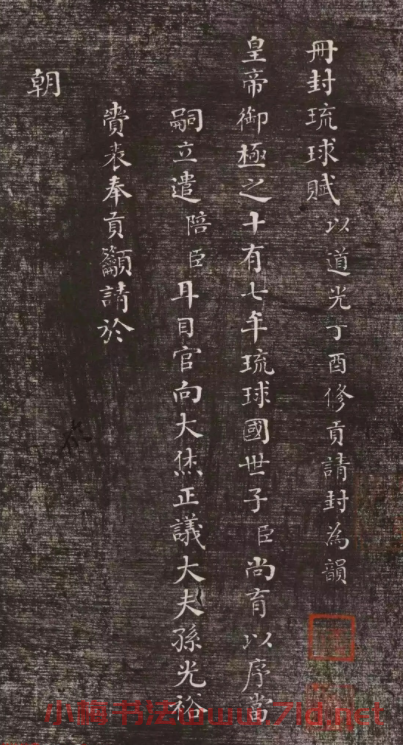 冊封琉球賦 以道光丁酉修貢請封為韻
皇帝御極之十有七年琉球國世子臣尚育以序當
嗣立遣陪臣耳目官向大烋正議大夫孫光裕
賫表奉貢籲請於
朝
www.7ld.net